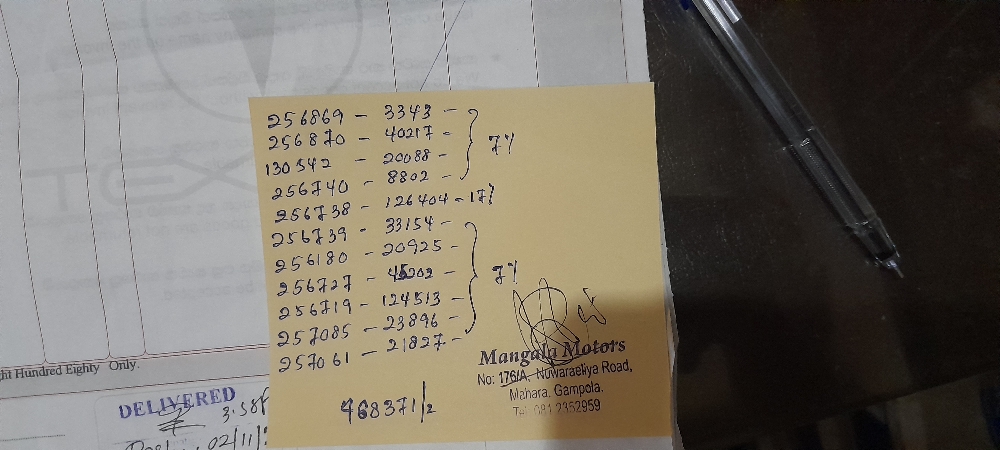 256869 - 3343 -
256870 - 40217 -
130542 - 20088 -
7%
256740 - 8802 -
256738 - 126404 - 17%
256739 - 33154 -
256180 - 20925 -
256727 - 45202 -
7%
256719 - 124513 -
257085 - 23896 -
257061 - 21827 -
468371/2
Mangala Motors
No: 176/A, Nuwaraeliya Road,
Mahara. Gampola.
Tel: 081 2352959
Hundred Eighty Only.
DELIVERED
3.58P
02/11/